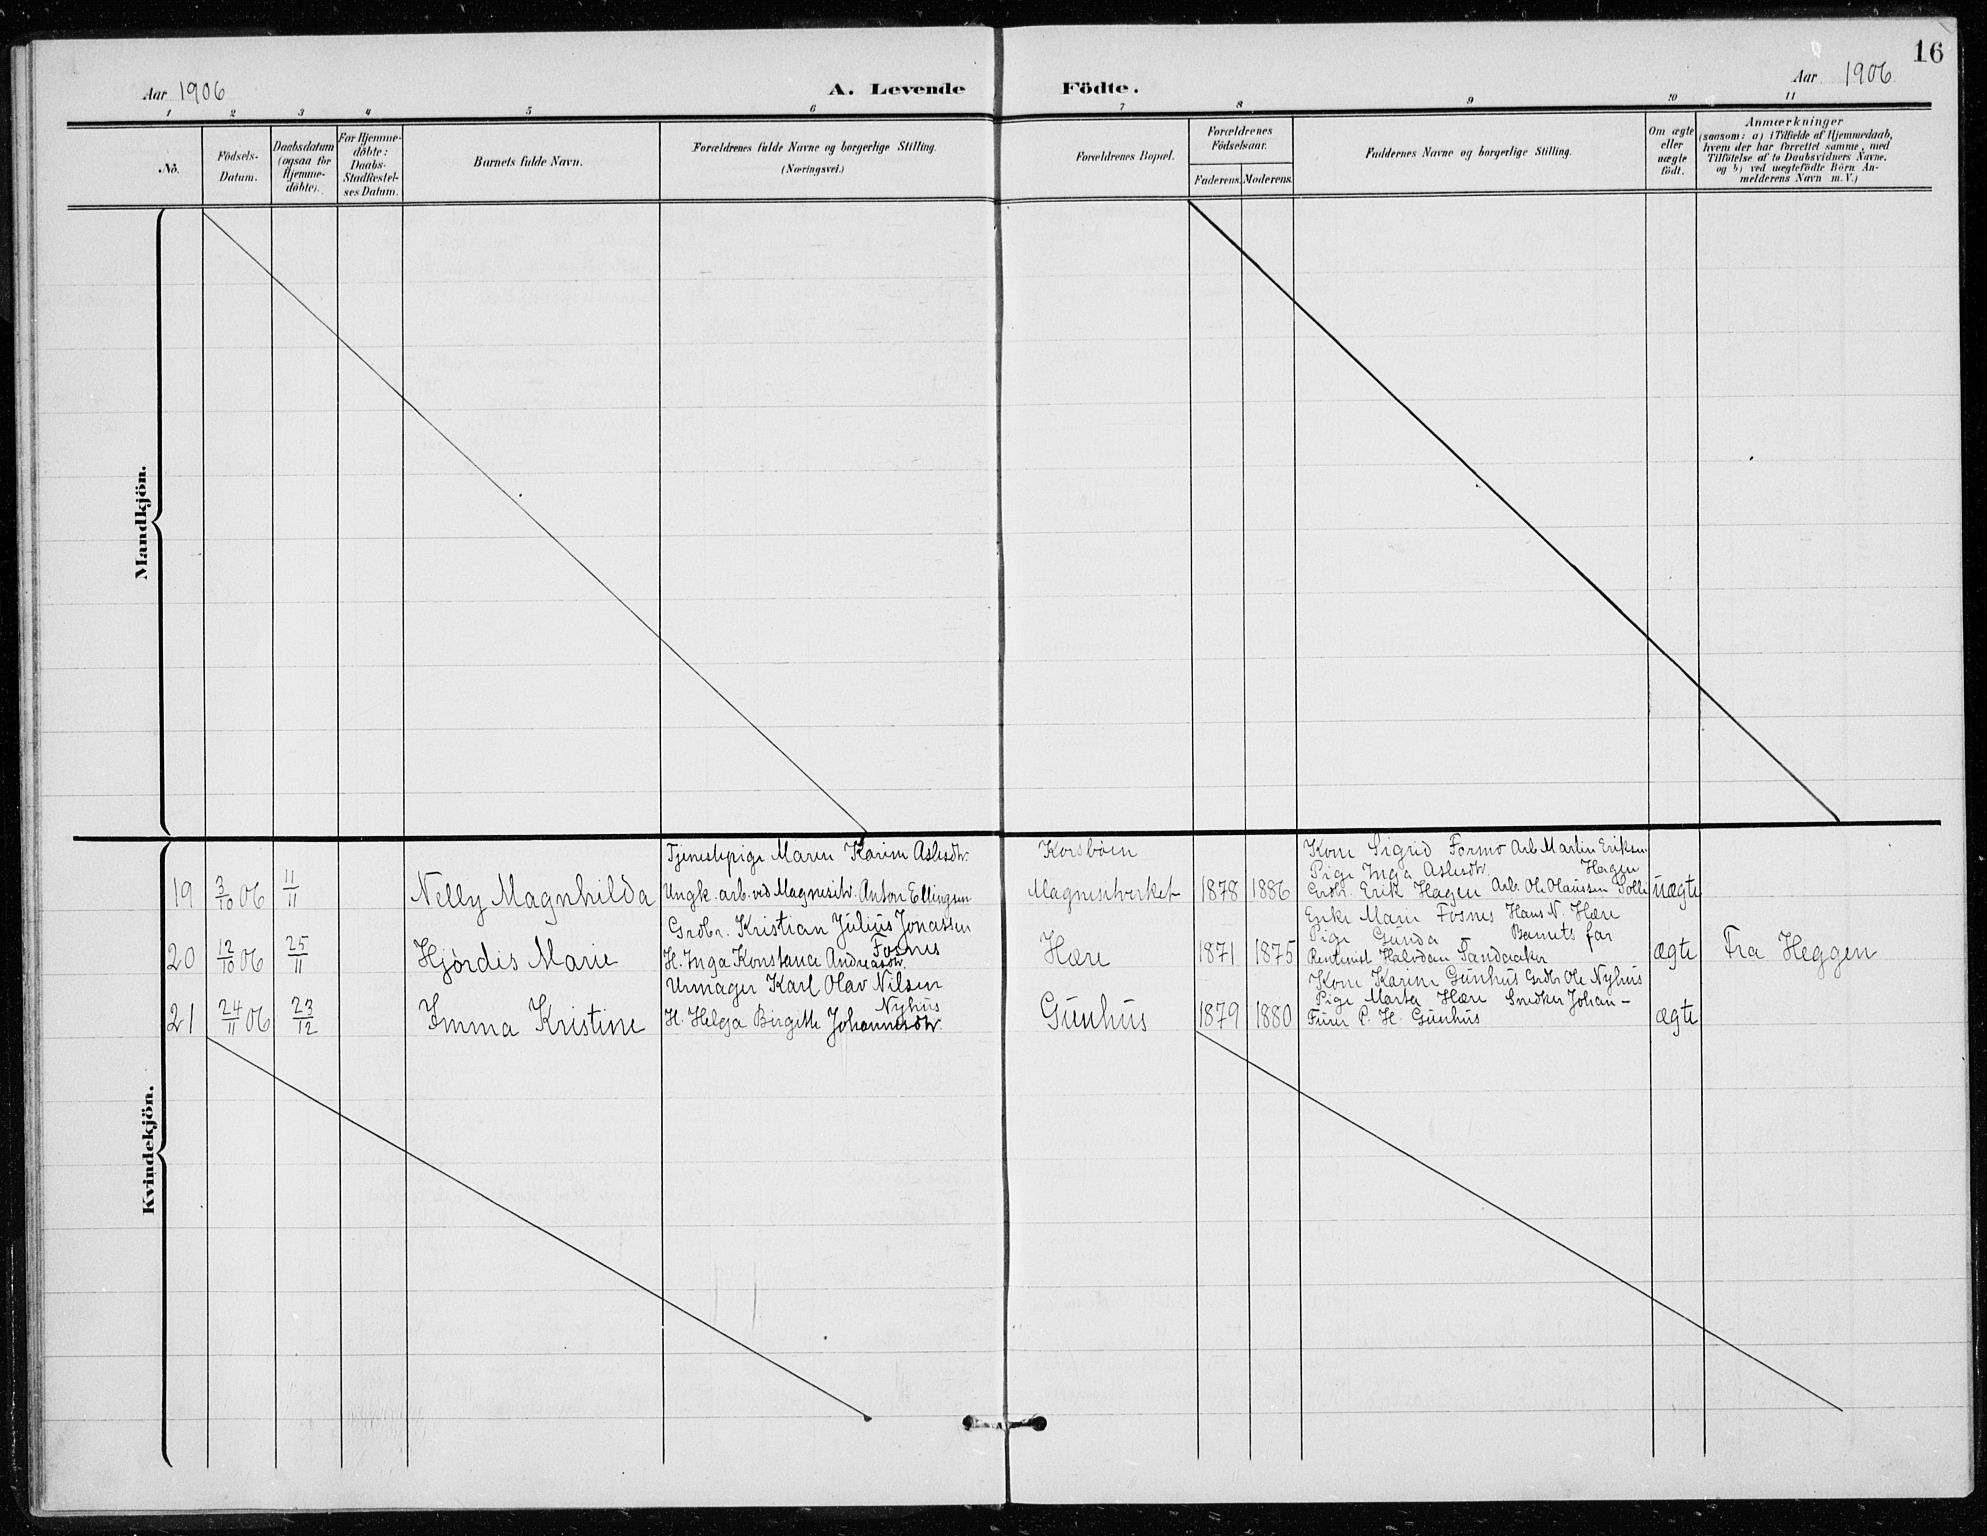 16
Aar 1906 A. Levende Födte. Aar 1906
1 2 3 4 5 6 7 8 9 10 11
No.
Födsels-
Datum.
Daabsdatum
(ogsaa for
Hjemme-
döbte).
For Hjemme-
döbte:
Daabs-
Stadfæstel-
ses Datum.
Barnets fulde Navn.
Forældrenes fulde Navne og borgerlige Stilling.
(Næringsvei.)
Forældrenes Bopæl.
Forældrenes
Födselsaar.
Faderens. Moderens.
Faddernes Navne og borgerlige Stilling.
Om ægte
eller
uægte
födt.
Anmærkninger
(saasom: a) i Tilfælde af Hjemmedaab,
hvem der har forrettet samme, med
Tilföielse af to Daabsvidners Navne,
og b) ved uægtefödte Börn An-
melderens Navn m. V.)
Mandkjön.
Kvindekjön.
19 3/10 06 11/11 Nelly Magnhilda
Tjenestepige Maren Karine Aslesdtr.
Ungk. arb. ved Magnesitv. Anton Ellingsen
Korsbøen
Magnesitverket
1878 1886
Kone Sigrid Formo Arb. Martin Eriksen
Pige Inga Aslesdtr. Hagen
Grdbr. Erik Hagen Arb. Ole Olaussen Solli
uægte
20 12/10 06 25/11 Hjørdis Marie
Grdbr. Kristian Julius Jonassen
Fosnes
H. Inga Konstance Andreasdtr.
Hære
1871 1875
Enke Marie Fosnes Hans N. Hære
Pige Gunda Barnets far
Rentenist Halvdan Sandaaker
ægte
Fra Heggen
21 24/11 06 23/12 Imma Kristine
Urmager Karl Olav Nilsen
Nyhus
H. Helga Birgitte Johannesdtr.
Gunhus
1879 1880
Kone Karine Gunhus Grdbr. Ole Nyhus
Pige Marta Hære Snedker Johan –
Furer P. H. Gunhus
ægte